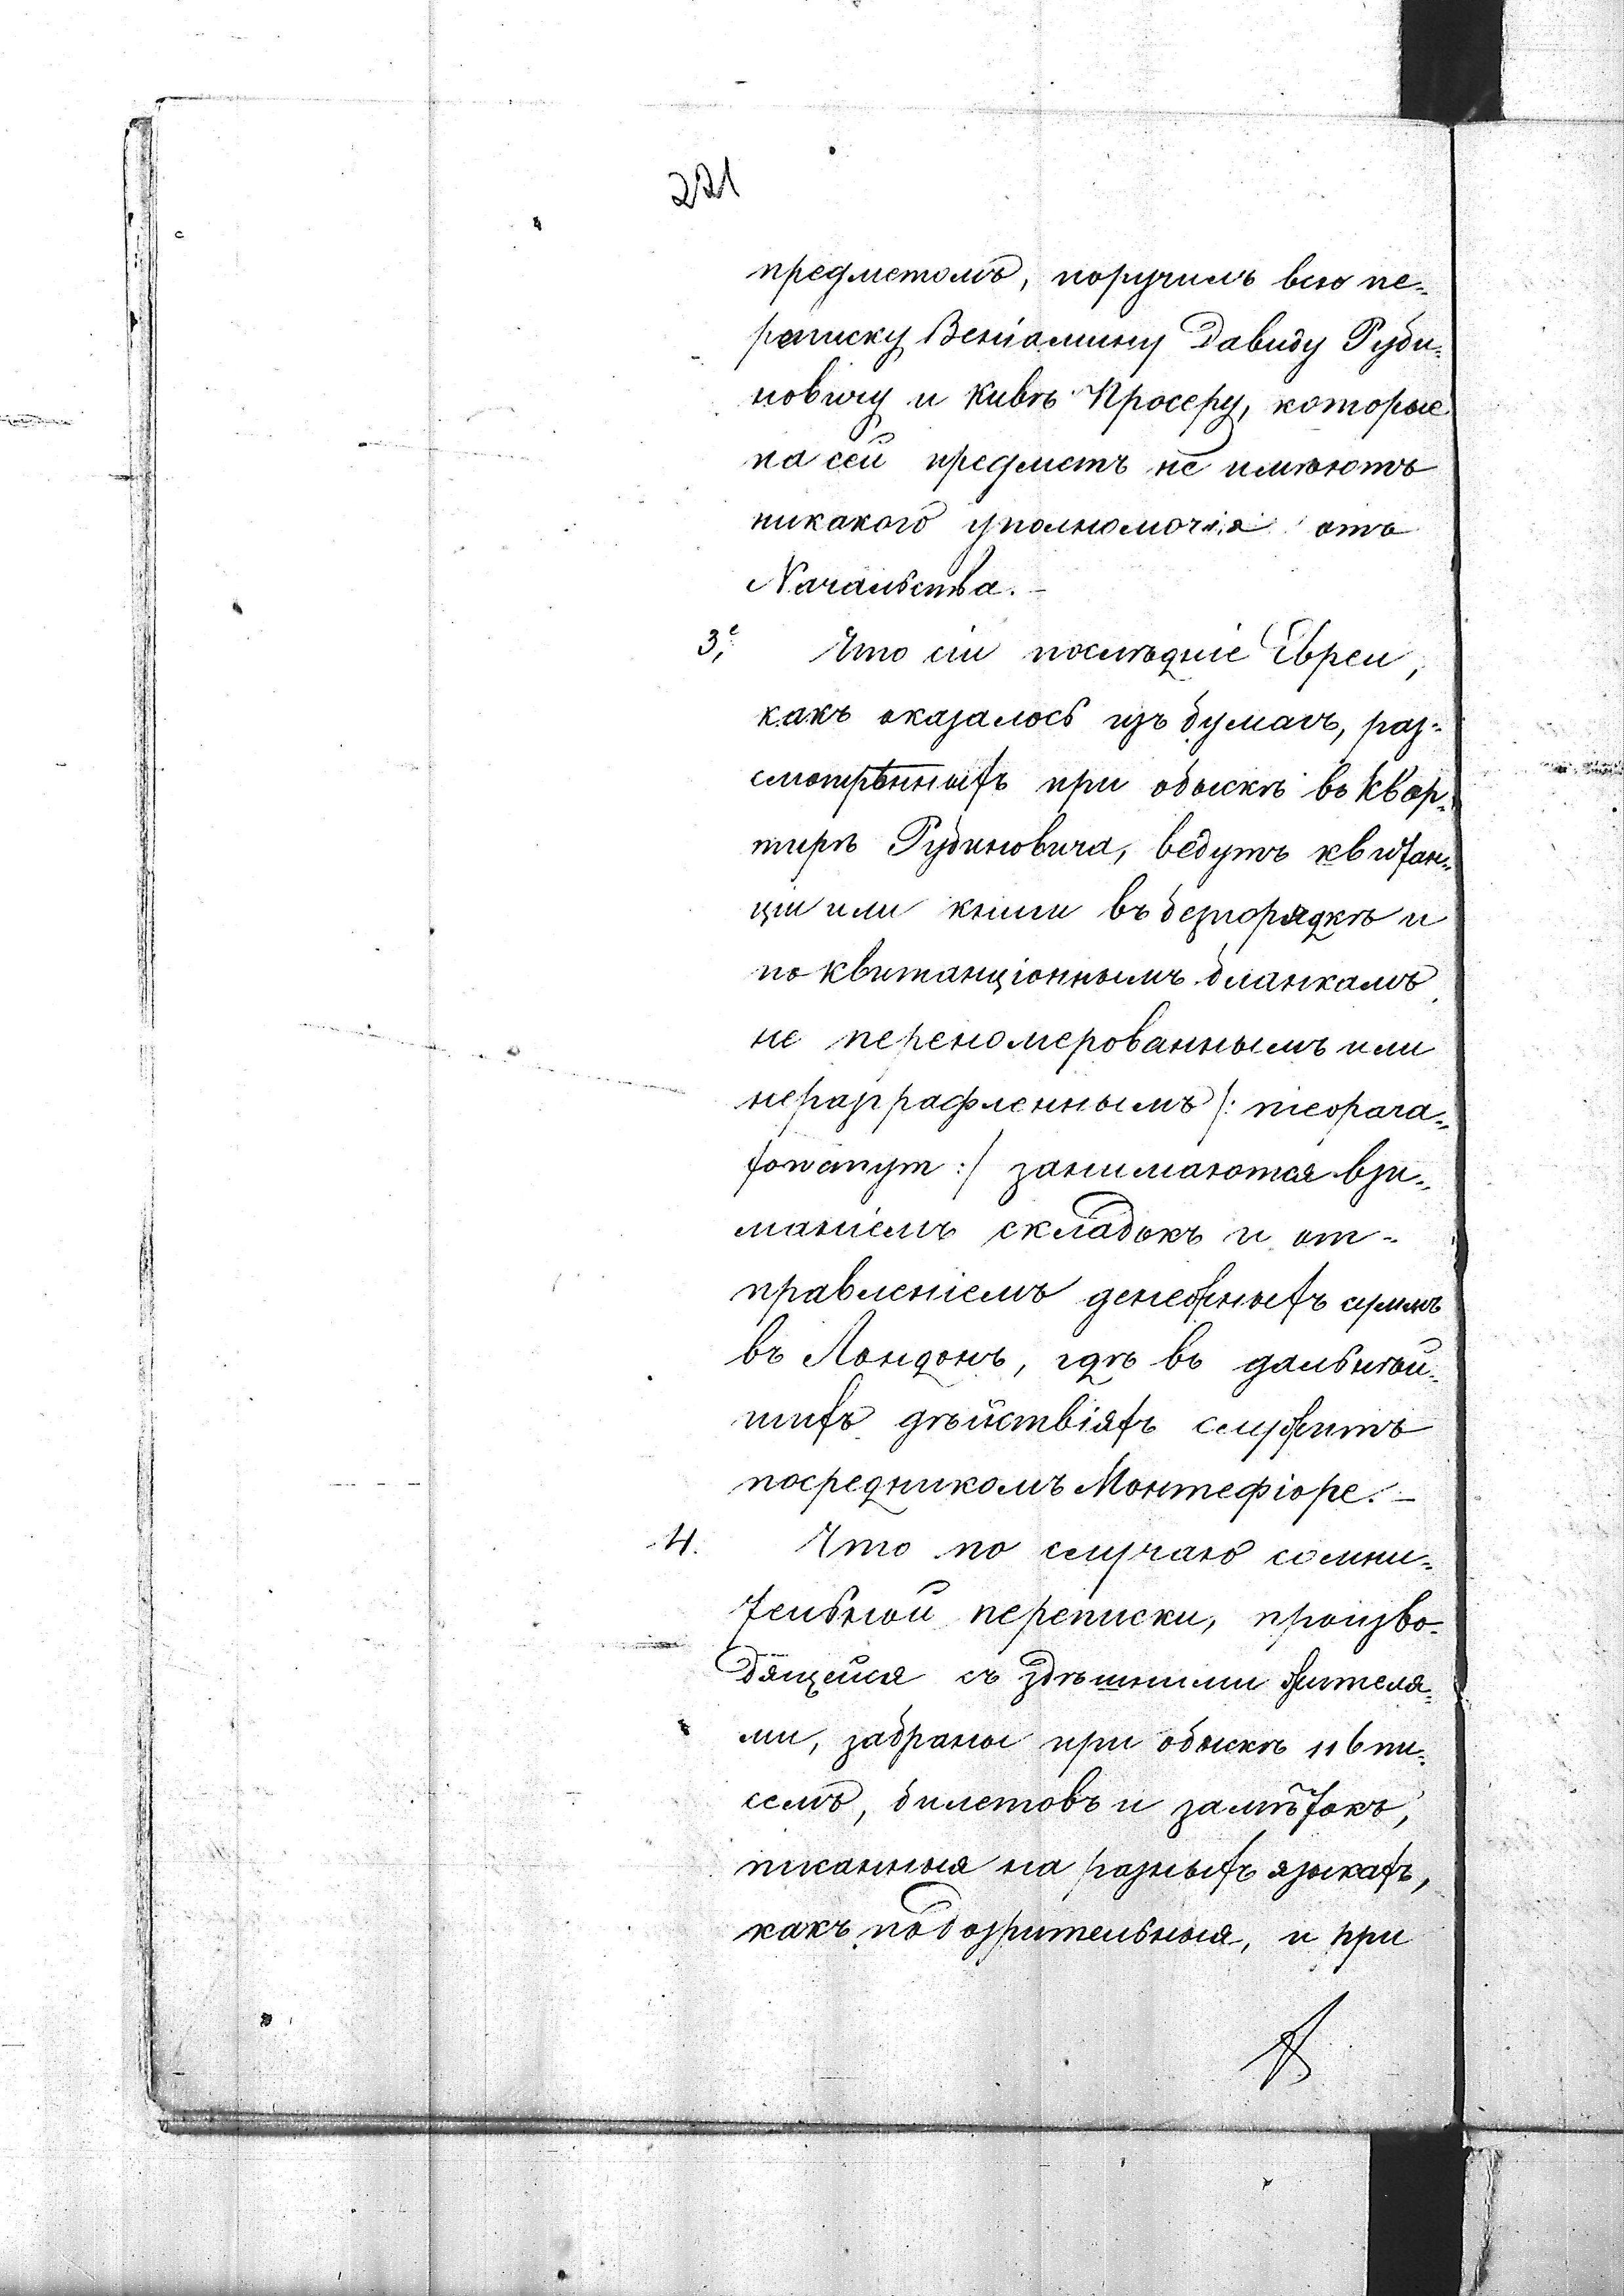 221
предметомъ, поручилъ всю пе-
реписку Веніамину Давиду Руби-
новичу и Кивѣ Просеру, которые
на сей предметъ не имѣютъ
никакого уполномочія отъ
Начальства.-
3е, Что сіи послѣдніе Евреи,
какъ оказалось изъ бумагъ, раз-
смотрѣнныхъ при обыскѣ въ Квар-
тирѣ Рубиновича, ведутъ квитан-
ціи или книги въ безпорядкѣ и
по квитанціоннымъ бланкамъ,
не переномерованнымъ или
неразграфленнымъ /: nieopara-
fowanym :/ занимаются взи-
маніемъ складокъ и от-
правленіемъ денежныхъ суммъ
въ Лондонъ, гдѣ въ дальнѣй-
шихъ дѣйствіяхъ служитъ
посредникомъ Монтефіоре.-
4. Что по случаю сомни-
тельной переписки, произво-
дящейся съ здѣшними жителя-
ми, забраны при обыскѣ 116 пи-
семъ, билетовъ и замѣтокъ,
писанныя на разныхъ языкахъ,
какъ подозрительныя, и при